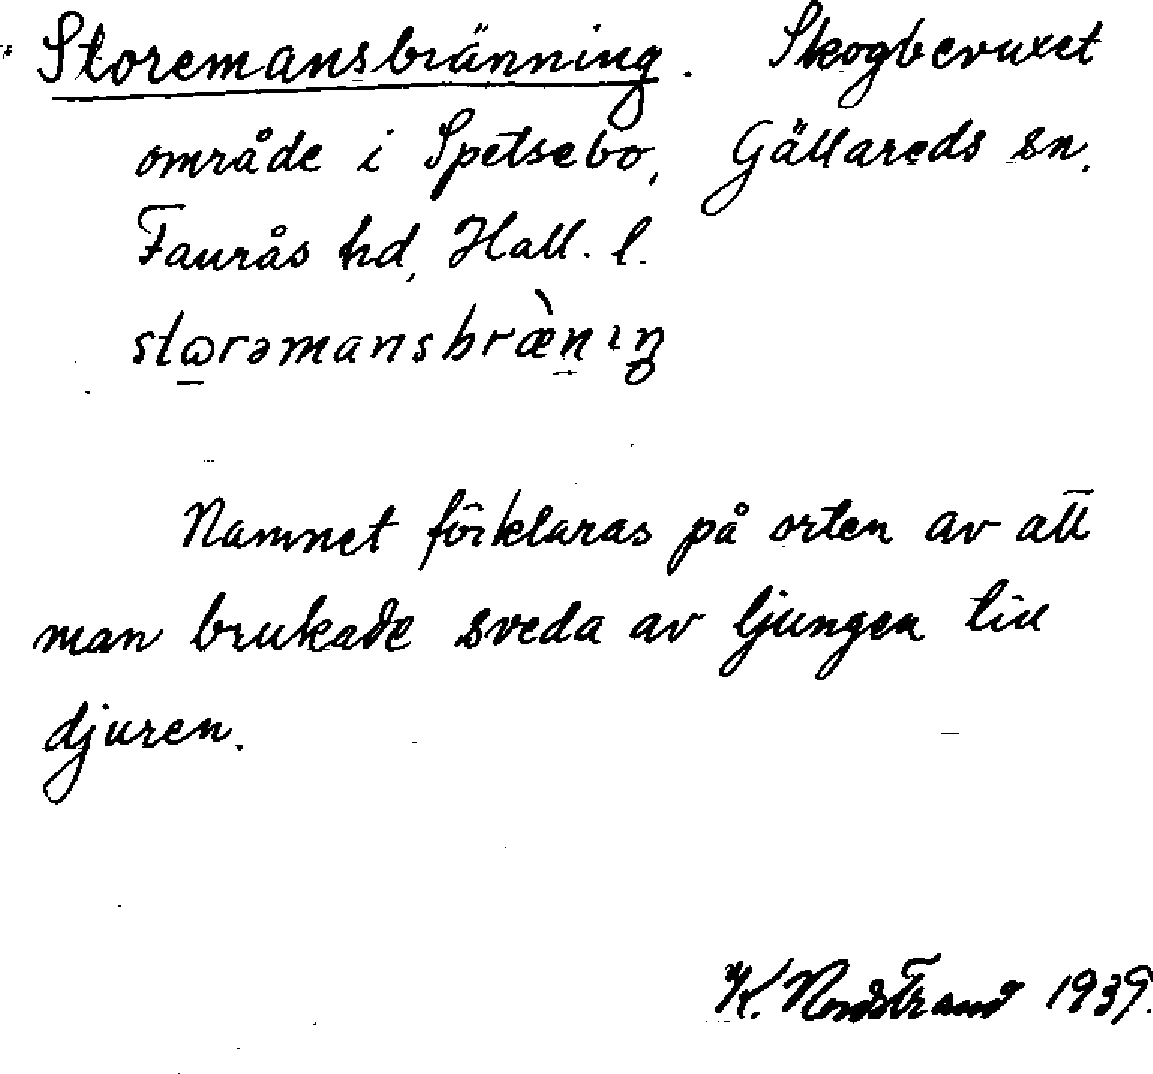 Storemansbränning. Skogbevuxet
område i Spetsebo, Gällareds sn,
Faurås hd, Hall. l.
stωrəmansbræ̀nıŋ
Namnet förklaras på orten av att
man brukade sveda av ljungen till
djuren.
K. Nordstrand 1939.